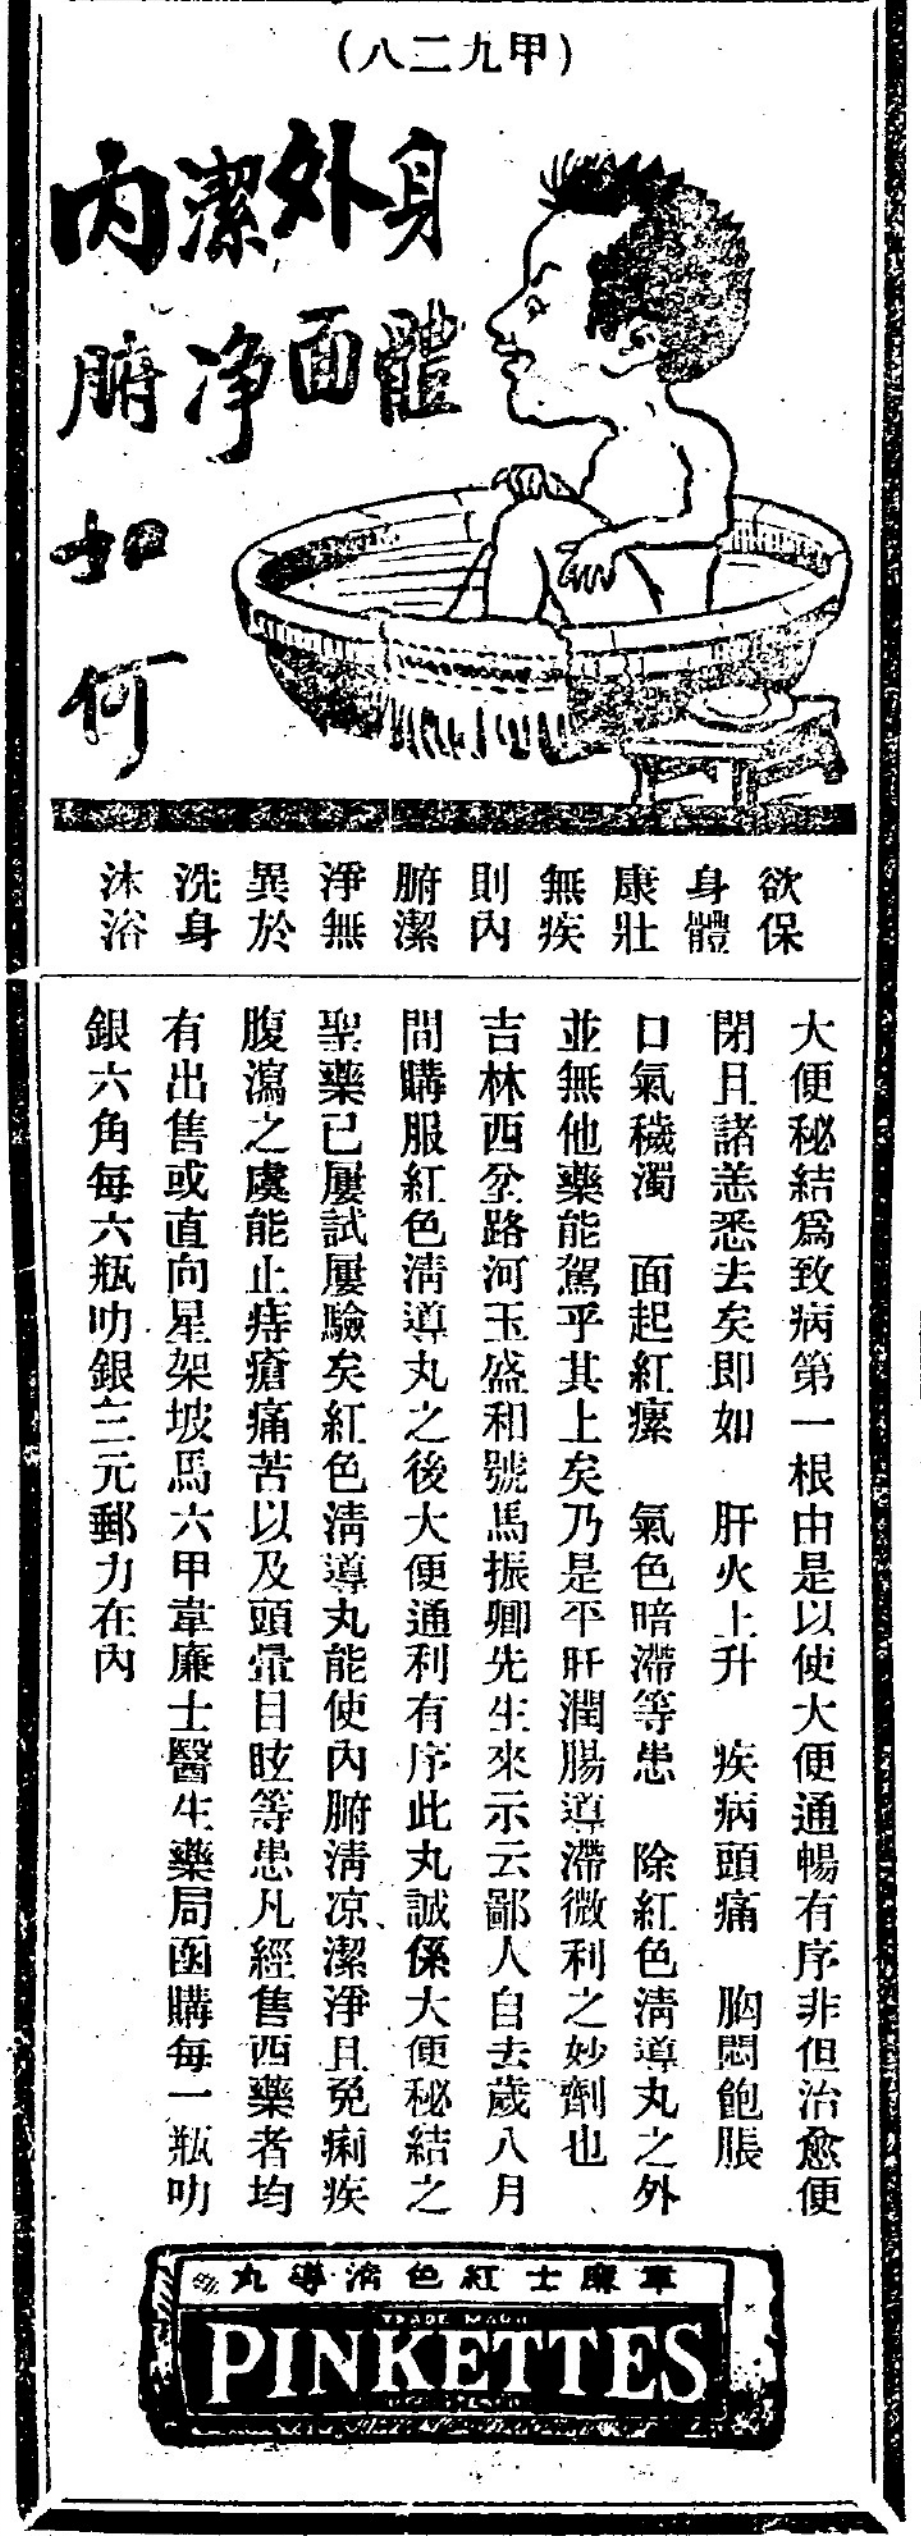 (甲九二八)
身體
外面
潔淨
內腑如何
欲保
身體
康壯
無疾
則內
腑潔
淨無
異於
洗身
沐浴
大便秘結爲致病第一根由是以使大便通暢有序非但治愈便
閉且諸恙悉去矣即如　肝火上升　疾病頭痛　胸悶飽脹
口氣穢濁　面起紅瘰　氣色暗滯等患　除紅色清導丸之外
並無他藥能駕乎其上矣乃是平肝潤腸導滯微利之妙劑也
吉林西岔路河玉盛和號馬振卿先生來示云鄙人自去歲八月
間購服紅色清導丸之後大便通利有序此丸誠係大便秘結之
聖藥已屢試屢驗矣紅色清導丸能使內腑清凉潔淨且免痢疾
腹瀉之虞能止痔瘡痛苦以及頭暈目眩等患凡經售西藥者均
有出售或直向星架坡馬六甲韋廉士醫生藥局函購每一瓶叻
銀六角每六瓶叻銀三元郵力在內
韋廉士紅色清導丸
TRADE MARK
PINKETTES